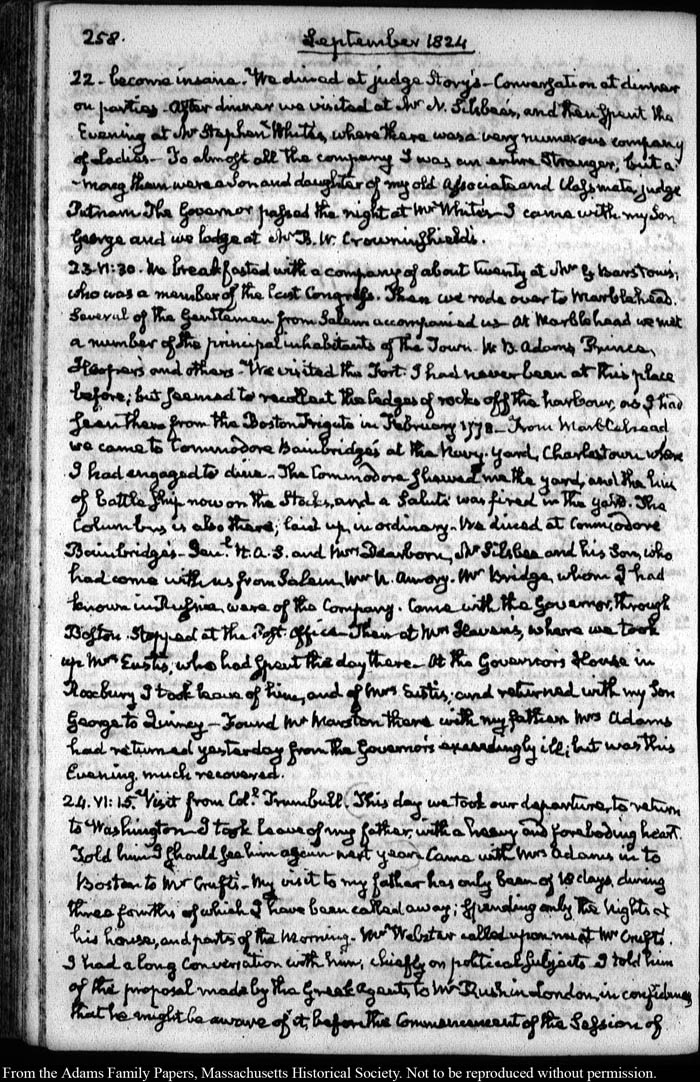 258.
September 1824
22 - become insane. We dined at judge Story's - Conversation at dinner
on parties. After dinner we visited at Mr N. Silsbee's, and then spent the
Evening at Mr Stephen White's, where there was a very numerous company
of Ladies - To almost all the company I was an entire Stranger, but a-
-mong them were a Son and daughter of my old Associate and Classmate judge
Putnam. The Governor passed the night at Mr White's - I came with my Son
George and we lodge at Mr B. W. Crowninshield's.
23. VI:30. We breakfasted with a company of about twenty at Mr G Barstow's,
who was a member of the last Congress. Then we rode over to Marblehead.
Several of the Gentlemen from Salem accompanied us - At Marblehead we met
a number of the principal inhabitants of the Town. W. B. Adams, Prince,
Hoopers and others - We visited the Fort. I had never been at this place
before; but seemed to recollect the ledges of rocks off the harbour, as I had
seen them from the Boston Frigate in February 1778 - From Marblehead
we came to Commodore Bainbridge's at the Navy-yard, Charlestown where
I had engaged to dine - The Commodore shewed me the yard, and the line
of battle ship now on the Stocks, and a Salute was fired in the yard. The
Columbus is also there; laid up, in ordinary - We dined at Commodore
Bainbridge's - Genl. H. A. S. and Mrs Dearborn, Mr Silsbee and his Son, who
had come with us from Salem, Mr Amory. Mr Bridge, whom I had
known in Russia, were of the Company. Came with the Governor, through
Boston. Stopped at the Post-Office - Then at Mrs where we took
up Mrs Eustis, who had spent the day there - At the Governor's House in
Roxbury I took leave of him, and of Mrs Eustis; and returned with my Son
George to Quincy - Found Mr Marston there with my father. Mrs Adams
had returned yesterday from the Governor's exceedingly ill; but was this
Evening, much recovered.
24. VI:15. Visit from Coll. Trumbull. This day we took our departure, to return
to Washington - I took leave of my father, with a heavy and foreboding heart.
Told him I should see him again next year. Came with Mrs Adams in to
Boston to Mr Cruft's - My visit to my father has only been of 18 days, during
three fourths of which I have been called away; spending only the Nights at
his house, and parts of the Morning - Mr Webster called upon me at Mr Cruft's.
I had a long Conversation with him, chiefly on political subjects. I told him
of the proposal made by the Greek Agents to Mr Rush in London, in confidence,
that he might be aware of it, before the Commencement of the Session of
From the Adams Family Papers, Massachusetts Historical Society. Not to be reproduced without permission.